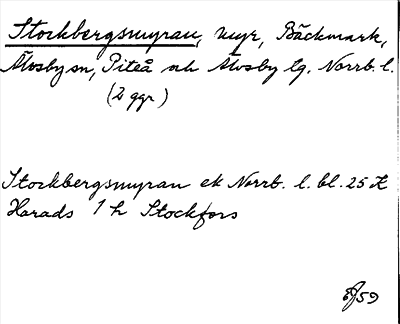 Stockbergsmyran, myr, Bäckmark,
Älvsby sn, Piteå och Älvsby tg. Norrb. l.
(2 ggr)
Stockbergsmyran ek Norrb. l. bl. 25
Harads 1 h Stockfors
59